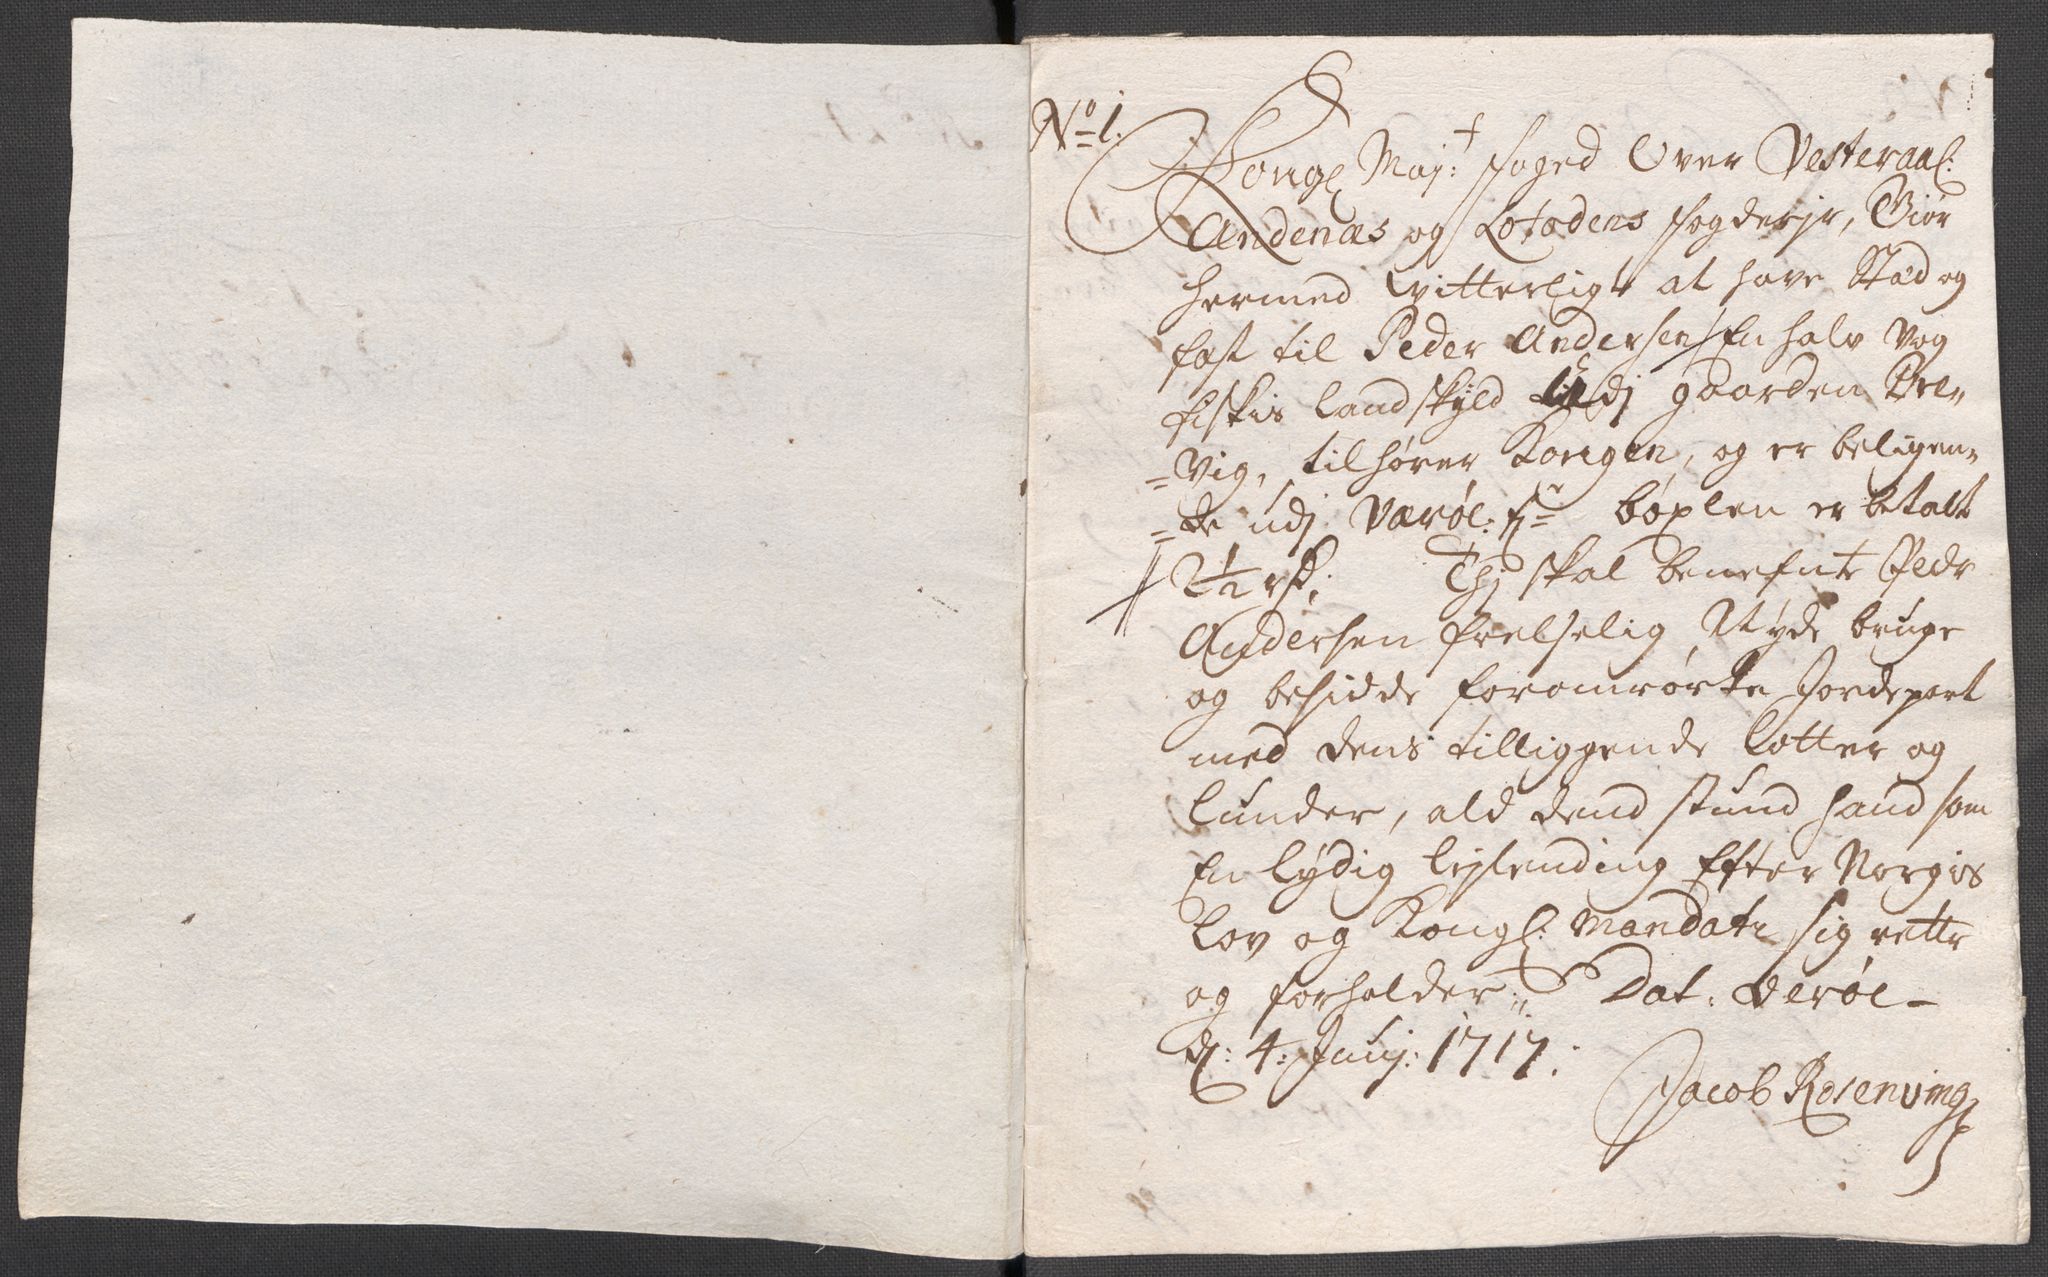 No 1.
Kongl Majt foged Over Vesteraal:
Andenæs og Lofodens fogderjr, Giør
hermed witterligt at have Stæd og
fæst til Peder Andersen, En halv Vog
fiskis landskyld udj gaarden Bre„
=vig, tilhører Kongen, og er beligen„
=de udj Værøe: fr bøxlen er betalt
2½ rd: Thj skal benefnte Pedr
Andersen frelselig Nyde bruge
og besidde foromrørte Jordepart
med dens tilliggende lotter og
lunder, ald dend stund hand som
En lydig lejlending Efter Norgis
lov og Kongl: Mandater sig retter
og forholder. Dat. Verøe –
d: 4: Junj: 1717.
Jacob Rosenving